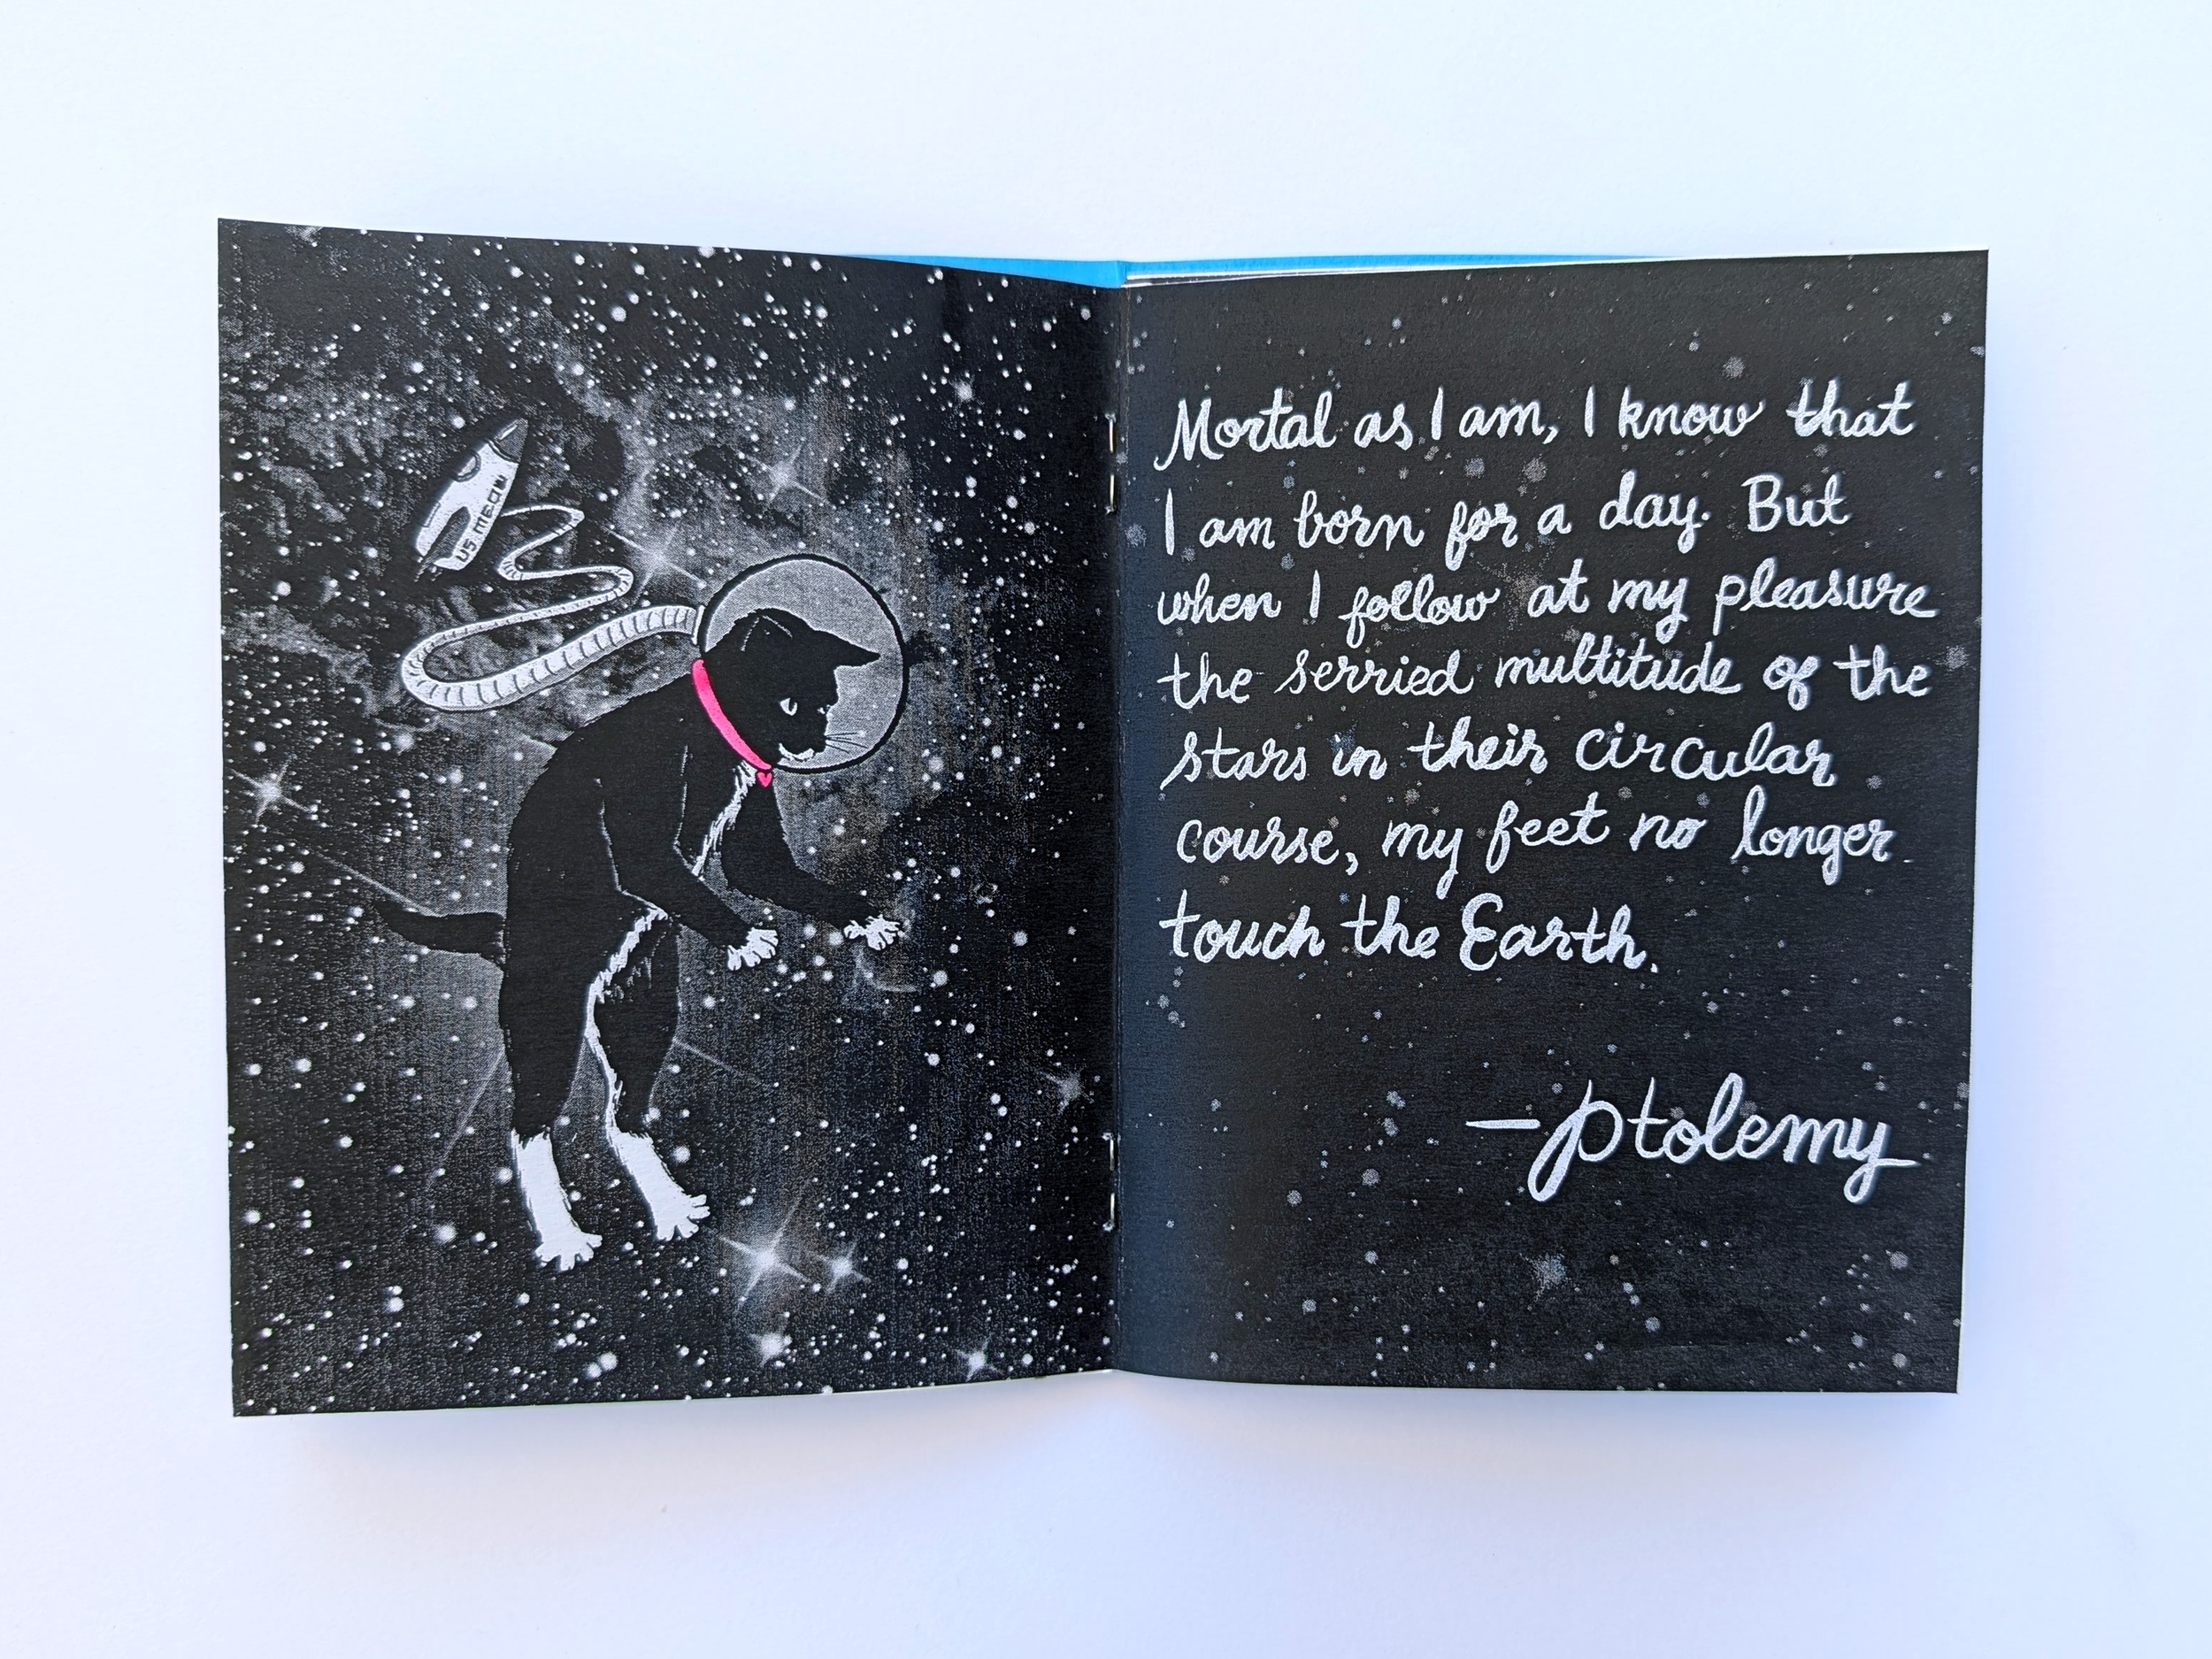 US MEOW
Mortal as I am, I know that
I am born for a day. But
when I follow at my pleasure
the serried multitude of the
stars in their circular
course, my feet no longer
touch the Earth.
—Ptolemy